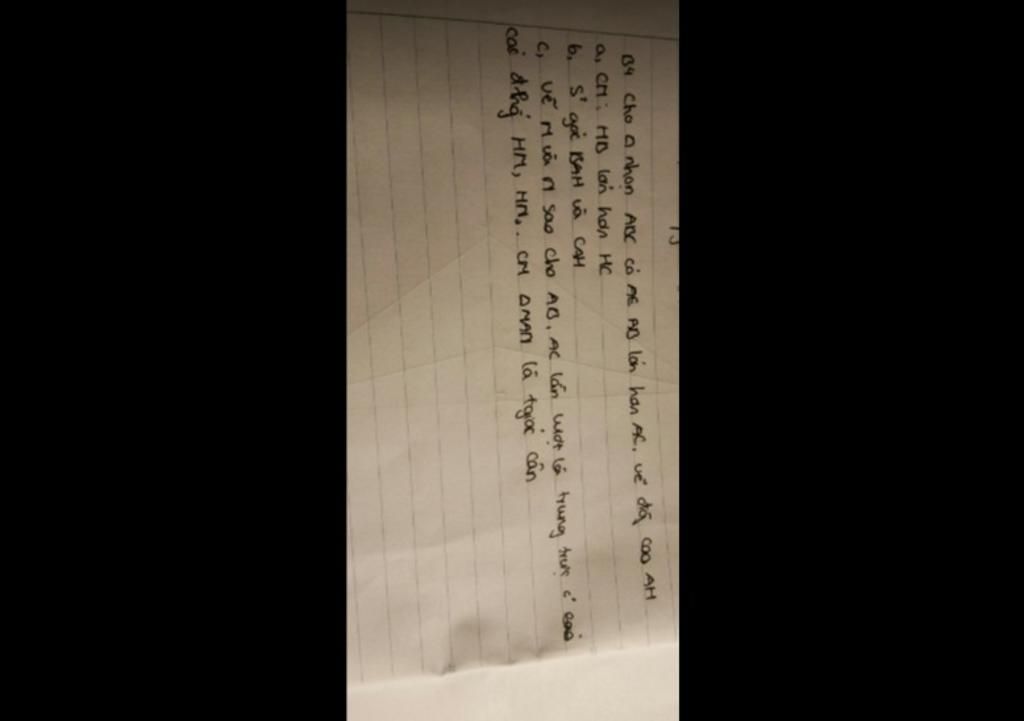 B4 Cho Δ nhọn ABC có AE AB lớn hơn AC, vẽ đg̀ cao AH
a, CM: HB lớn hơn HC
b, s² góc BAH và CAH
c, vẽ M và N sao cho AB, AC lần lượt là trung trực c² của
các đthg̉ HM, HN. CM ΔMAN là tgiác cân